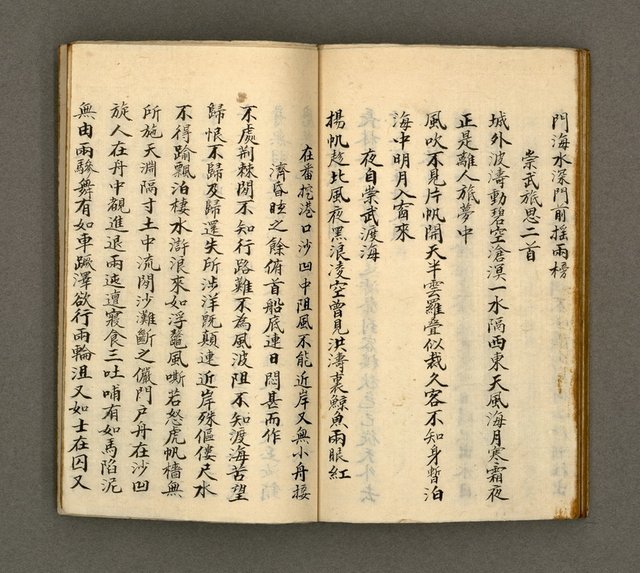 門海水深門前搖兩槳
崇武旅思二首
城外波濤動碧空滄溟一水隔西東天風海月寒霜夜
正是離人旅夢中
風吹不見片帆開天半雲羅疊似裁久客不知身暫泊
海中明月入窗來
夜自崇武渡海
揚帆趁北風夜黑浪凌空曾見洪濤裏鯨魚兩眼紅
在番挖港口沙凹中阻風不能近岸又無小舟接
濟昏眩之餘俯首船底連日悶甚而作
不處荆棘閒不知行路難不為風波阻不知渡海苦望
歸恨不歸及歸還失所涉洋既顛連近岸殊傴僂尺水
不得踰飄泊棲水滸浪來如浮鼇風嘶若怒虎帆檣無
所施天淵隔寸土中流閒沙灘斷之儼門戶舟在沙凹
旋人在舟中覩進退兩迍邅寢食三吐哺有如馬陷泥
無由兩驂舞有如車蹶澤欲行兩輪沮又如士在囚又